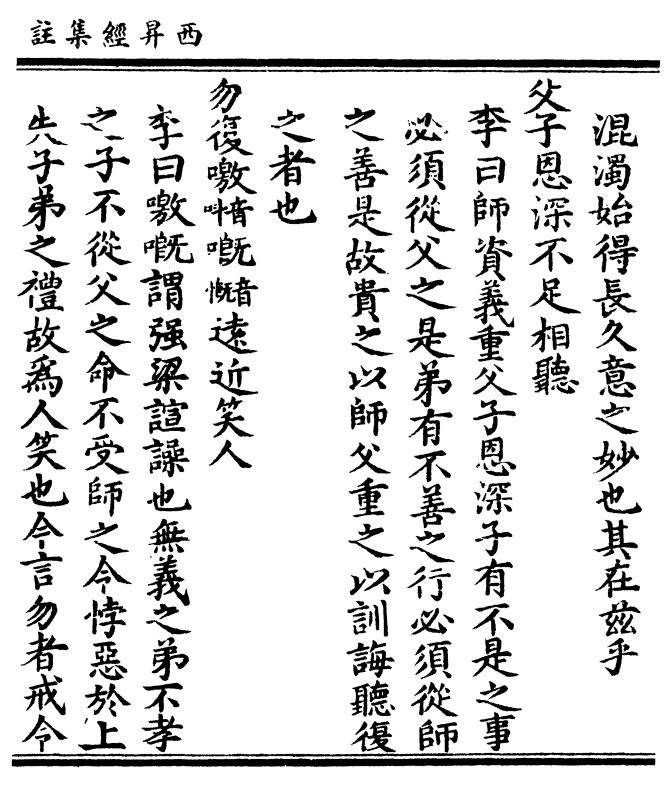 西昇經集註
混濁始得長久意之妙也其在茲乎
父子恩深不足相聽
李曰師資義重父子恩深子有不是之事
必須從父之是弟有不善之行必須從師
之善是故貴之以師父重之以訓誨聽復
之者也
勿復噭音叫嘅音慨遠近笑人
李曰噭嘅謂强梁諠譟也無義之弟不孝
之子不從父之命不受師之令悖惡於上
失子弟之禮故爲人笑也今言勿者戒令